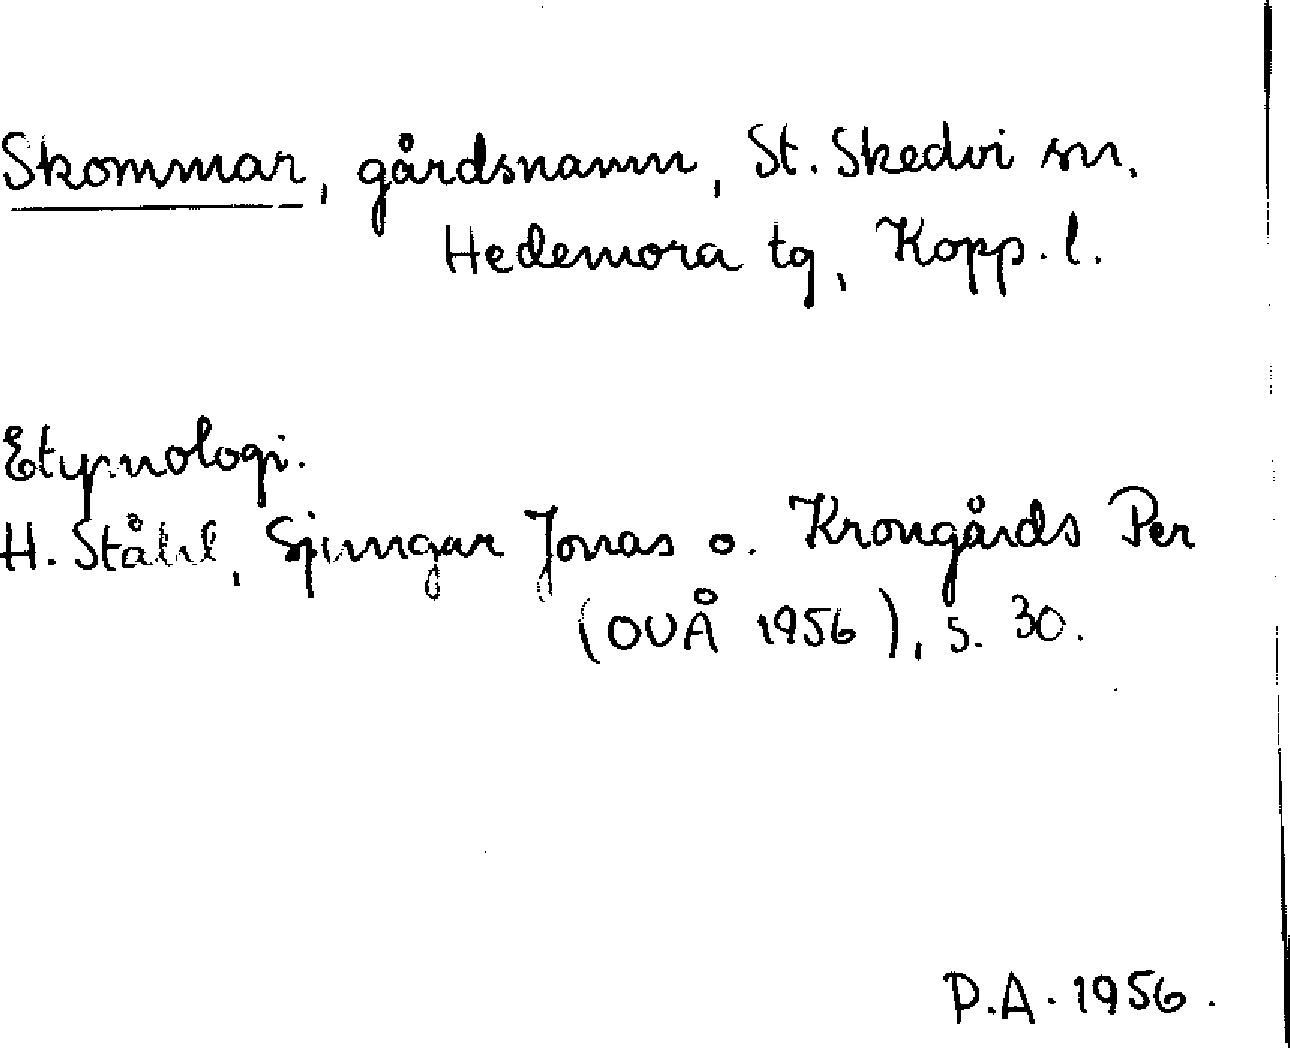 Skommar, gårdsnamn, St. Skedvi sn.
Hedemora tg, Kopp. l.
Etymologi.
H. Ståhl, Sjungar Jonas o. Krongårds Per
(OUÅ 1956), s. 30.
P.A. 1956.